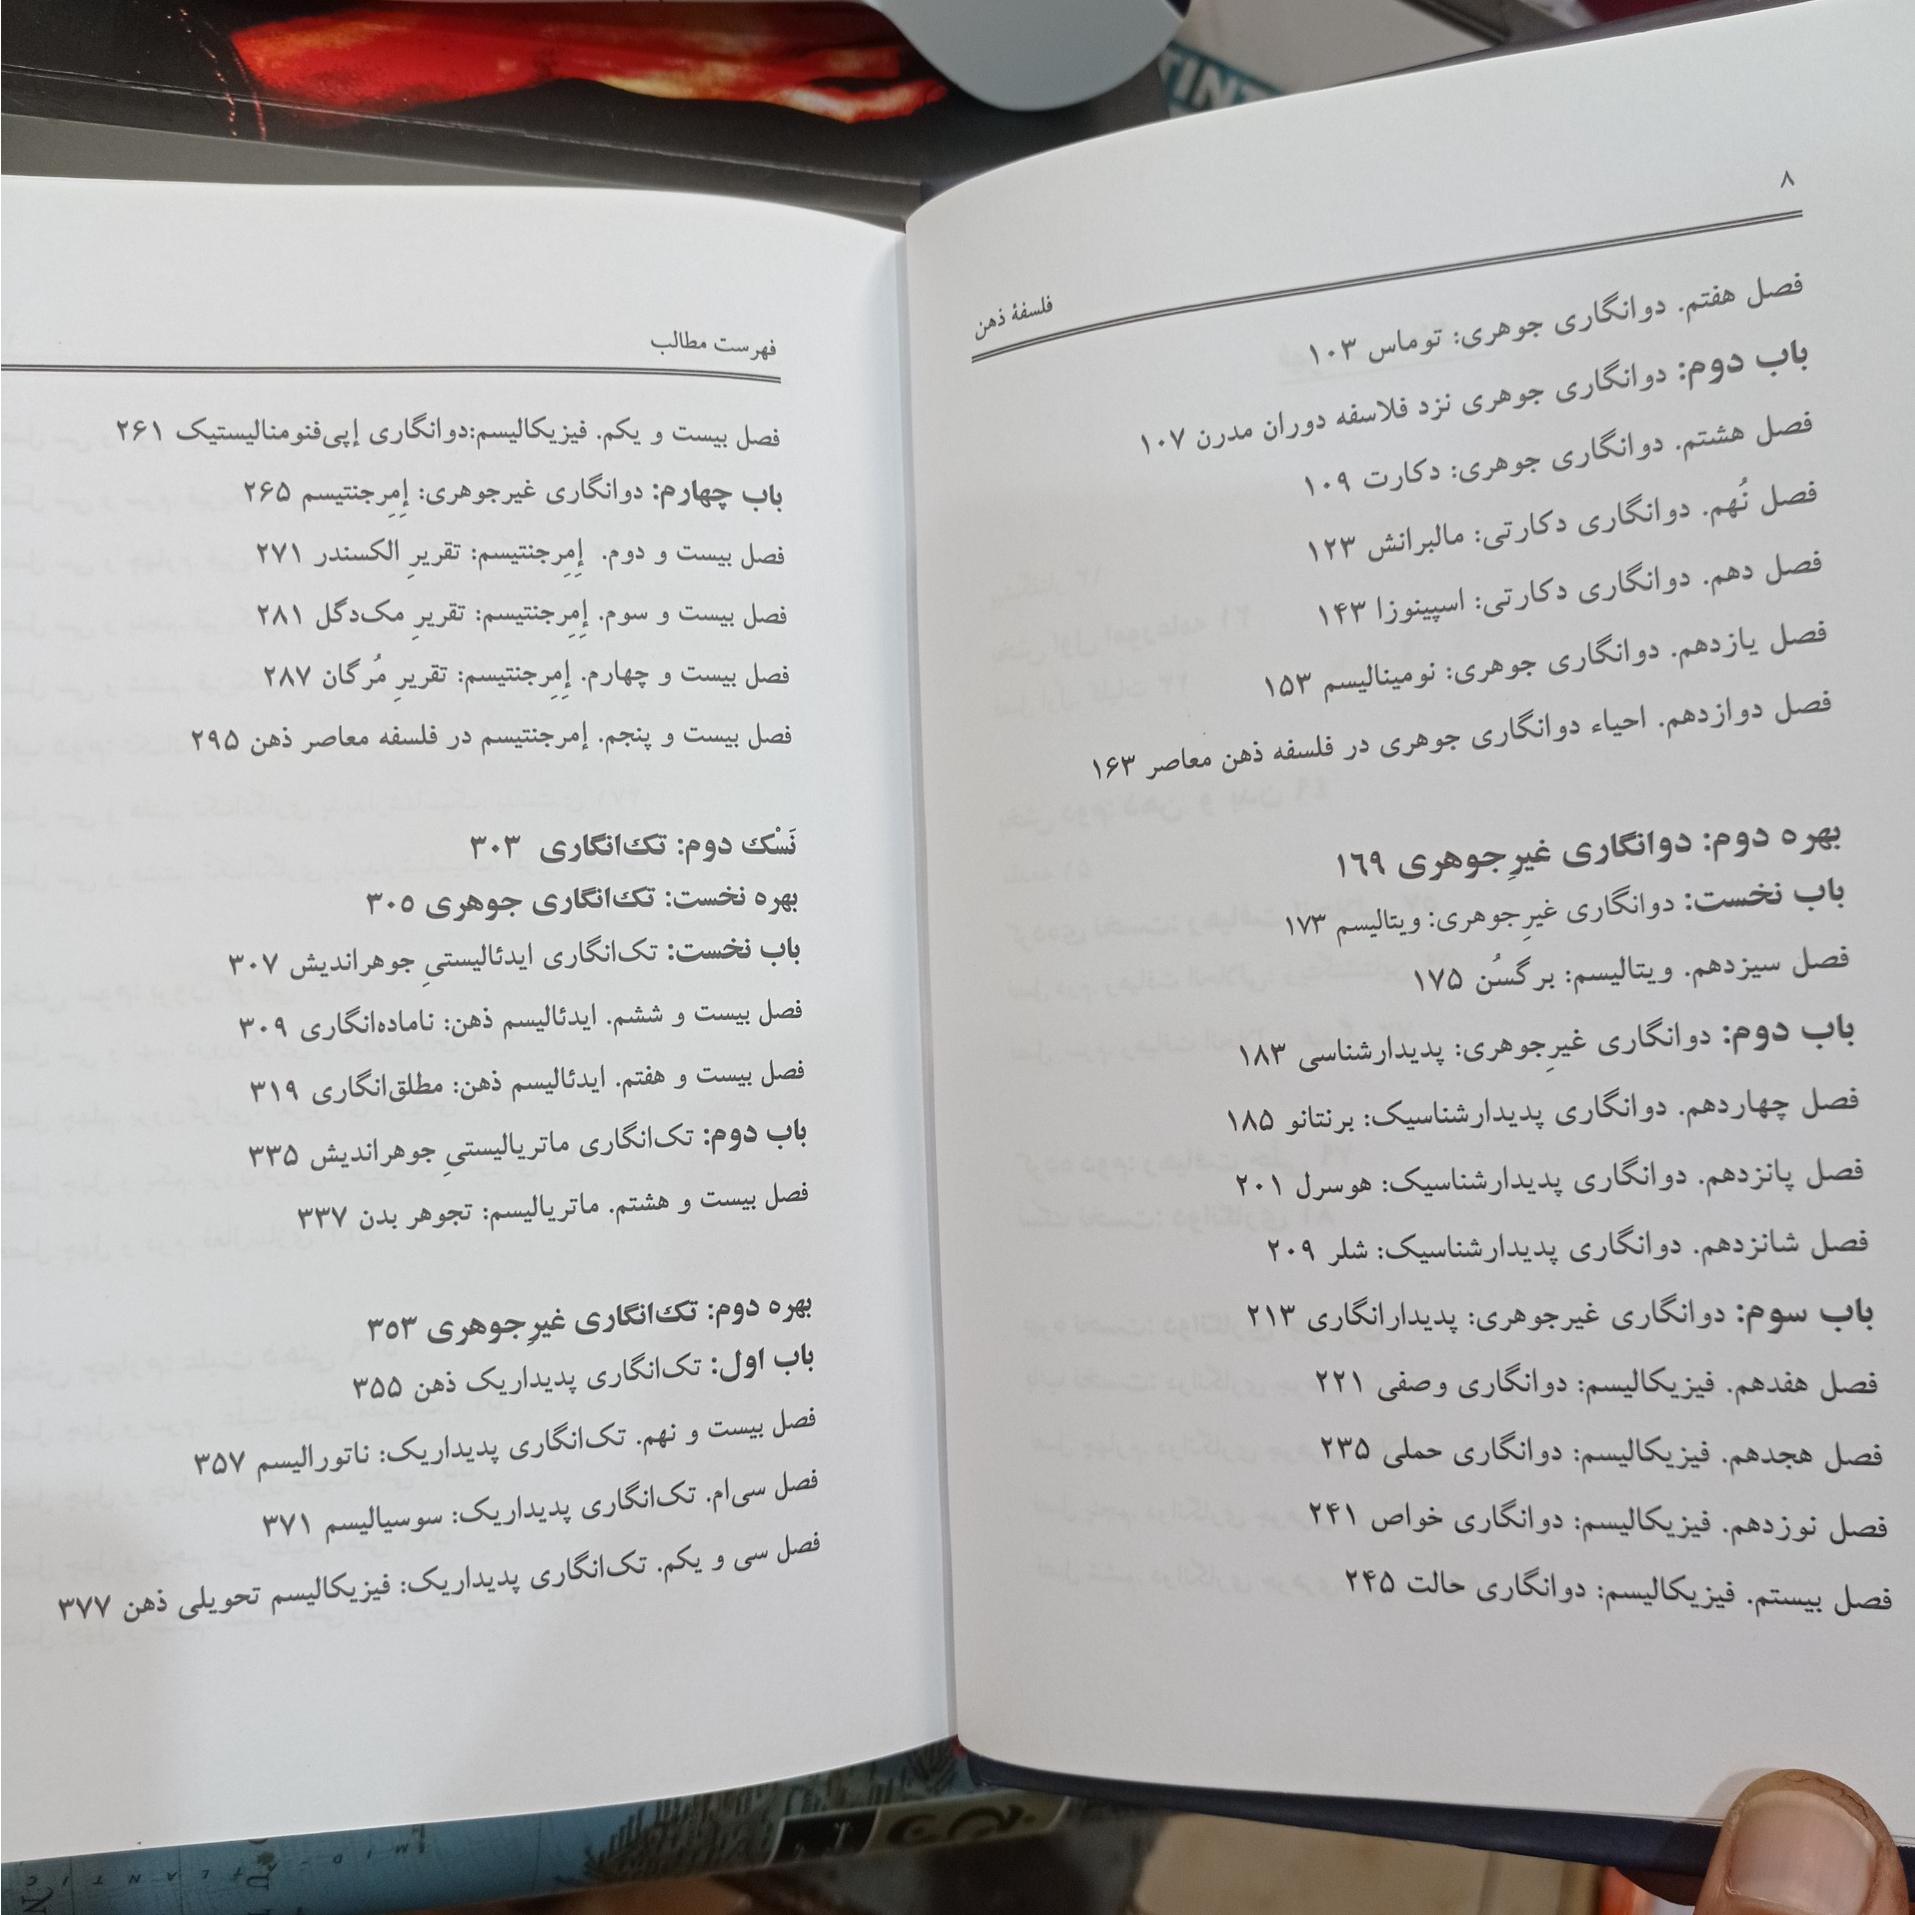 ۸
فلسفهٔ ذهن
فصل هفتم. دوانگاری جوهری: توماس ۱۰۳
باب دوم: دوانگاری جوهری نزد فلاسفه دوران مدرن ۱۰۷
فصل هشتم. دوانگاری جوهری: دکارت ۱۰۹
فصل نُهم. دوانگاری دکارتی: مالبرانش ۱۲۳
فصل دهم. دوانگاری دکارتی: اسپینوزا ۱۴۳
فصل یازدهم. دوانگاری جوهری: نومینالیسم ۱۵۳
فصل دوازدهم. احیاء دوانگاری جوهری در فلسفه ذهن معاصر ۱۶۳
بهره دوم: دوانگاری غیرِجوهری ۱۶۹
باب نخست: دوانگاری غیرِجوهری: ویتالیسم ۱۷۳
فصل سیزدهم. ویتالیسم: برگسُن ۱۷۵
باب دوم: دوانگاری غیرِجوهری: پدیدارشناسی ۱۸۳
فصل چهاردهم. دوانگاری پدیدارشناسیک: برنتانو ۱۸۵
فصل پانزدهم. دوانگاری پدیدارشناسیک: هوسرل ۲۰۱
فصل شانزدهم. دوانگاری پدیدارشناسیک: شلر ۲۰۹
باب سوم: دوانگاری غیرجوهری: پدیدارانگاری ۲۱۳
فصل هفدهم. فیزیکالیسم: دوانگاری وصفی ۲۲۱
فصل هجدهم. فیزیکالیسم: دوانگاری حملی ۲۳۵
فصل نوزدهم. فیزیکالیسم: دوانگاری خواص ۲۴۱
فصل بیستم. فیزیکالیسم: دوانگاری حالت ۲۴۵
فهرست مطالب
فصل بیست و یکم. فیزیکالیسم:دوانگاری اِپی‌فنومنالیستیک ۲۶۱
باب چهارم: دوانگاری غیرجوهری: اِمِرجنتیسم ۲۶۵
فصل بیست و دوم. اِمِرجنتیسم: تقریرِ الکسندر ۲۷۱
فصل بیست و سوم. اِمِرجنتیسم: تقریرِ مک‌دگل ۲۸۱
فصل بیست و چهارم. اِمِرجنتیسم: تقریرِ مُرگان ۲۸۷
فصل بیست و پنجم. اِمرجنتیسم در فلسفه معاصر ذهن ۲۹۵
نَسْک دوم: تک‌انگاری ۳۰۳
بهره نخست: تک‌انگاری جوهری ۳۰۵
باب نخست: تک‌انگاری ایدئالیستیِ جوهراندیش ۳۰۷
فصل بیست و ششم. ایدئالیسم ذهن: ناماده‌انگاری ۳۰۹
فصل بیست و هفتم. ایدئالیسم ذهن: مطلق‌انگاری ۳۱۹
باب دوم: تک‌انگاری ماتریالیستیِ جوهراندیش ۳۳۵
فصل بیست و هشتم. ماتریالیسم: تجوهر بدن ۳۳۷
بهره دوم: تک‌انگاری غیرِجوهری ۳۵۳
باب اول: تک‌انگاری پدیداریک ذهن ۳۵۵
فصل بیست و نهم. تک‌انگاری پدیداریک: ناتورالیسم ۳۵۷
فصل سی‌ام. تک‌انگاری پدیداریک: سوسیالیسم ۳۷۱
فصل سی و یکم. تک‌انگاری پدیداریک: فیزیکالیسم تحویلی ذهن ۳۷۷